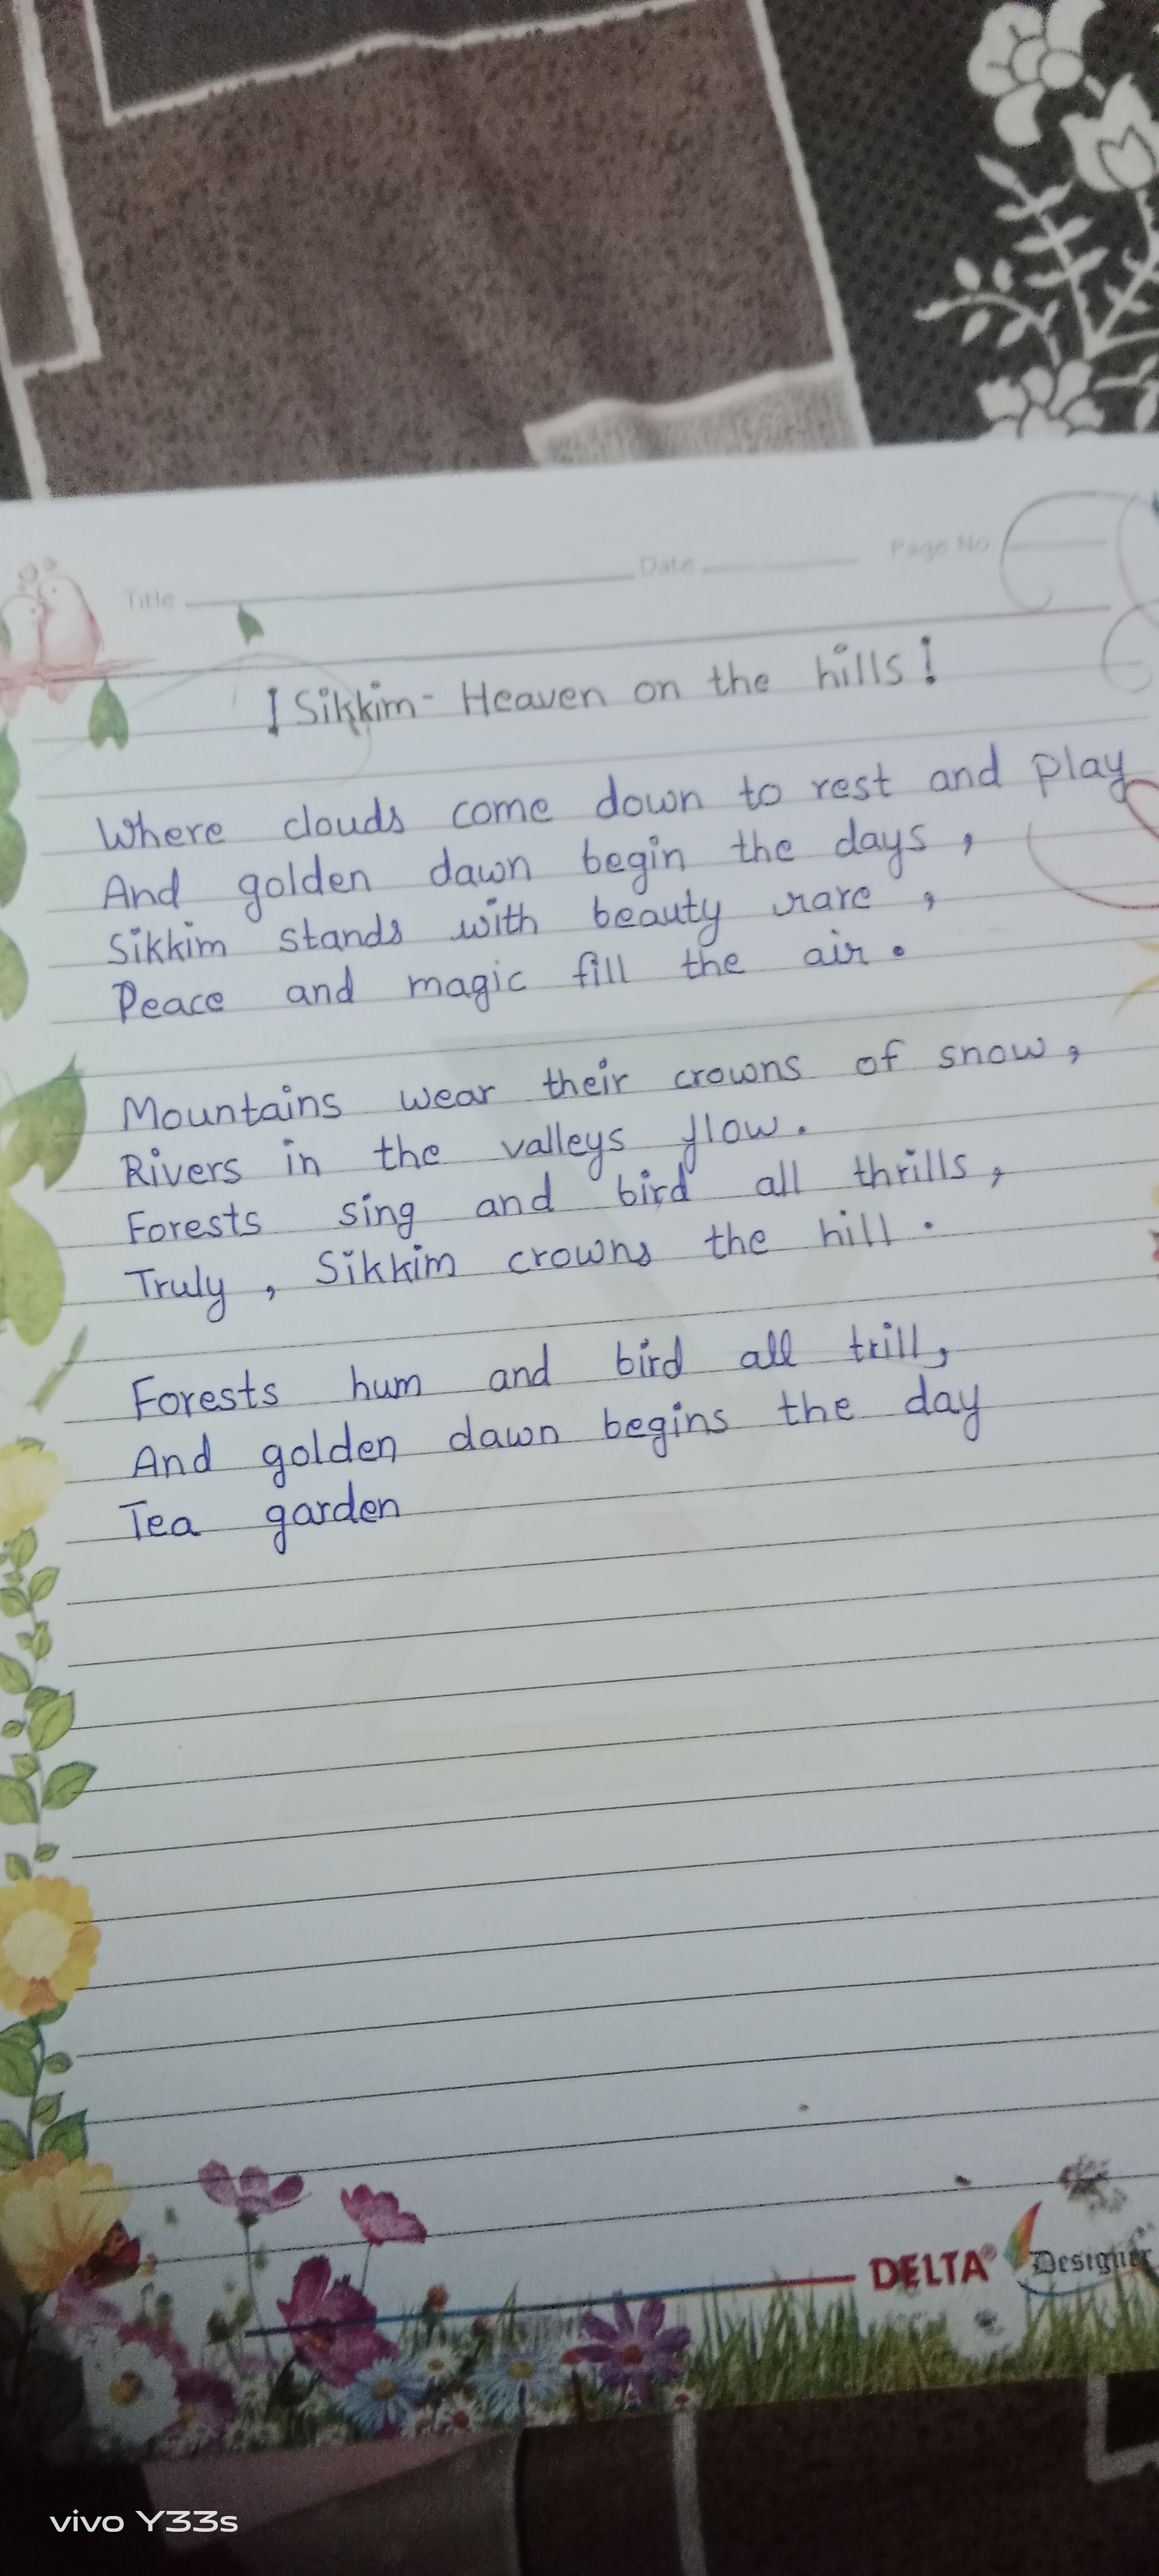 Title Date Page No.
! Sikkim - Heaven on the hills !
Where clouds come down to rest and play
And golden dawn begin the days ,
Sikkim stands with beauty rare ,
Peace and magic fill the air .
Mountains wear their crowns of snow ,
Rivers in the valleys flow .
Forests sing and bird all thrills ,
Truly , Sikkim crowns the hill .
Forests hum and bird all trill ,
And golden dawn begins the day
Tea garden
DELTA® Designer
vivo Y33s